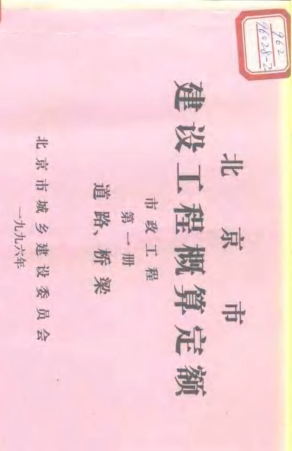 962
96028-2
北京市
建设工程概算定额
市政工程
第一册
道路、桥梁
北京市城乡建设委员会
一九九六年